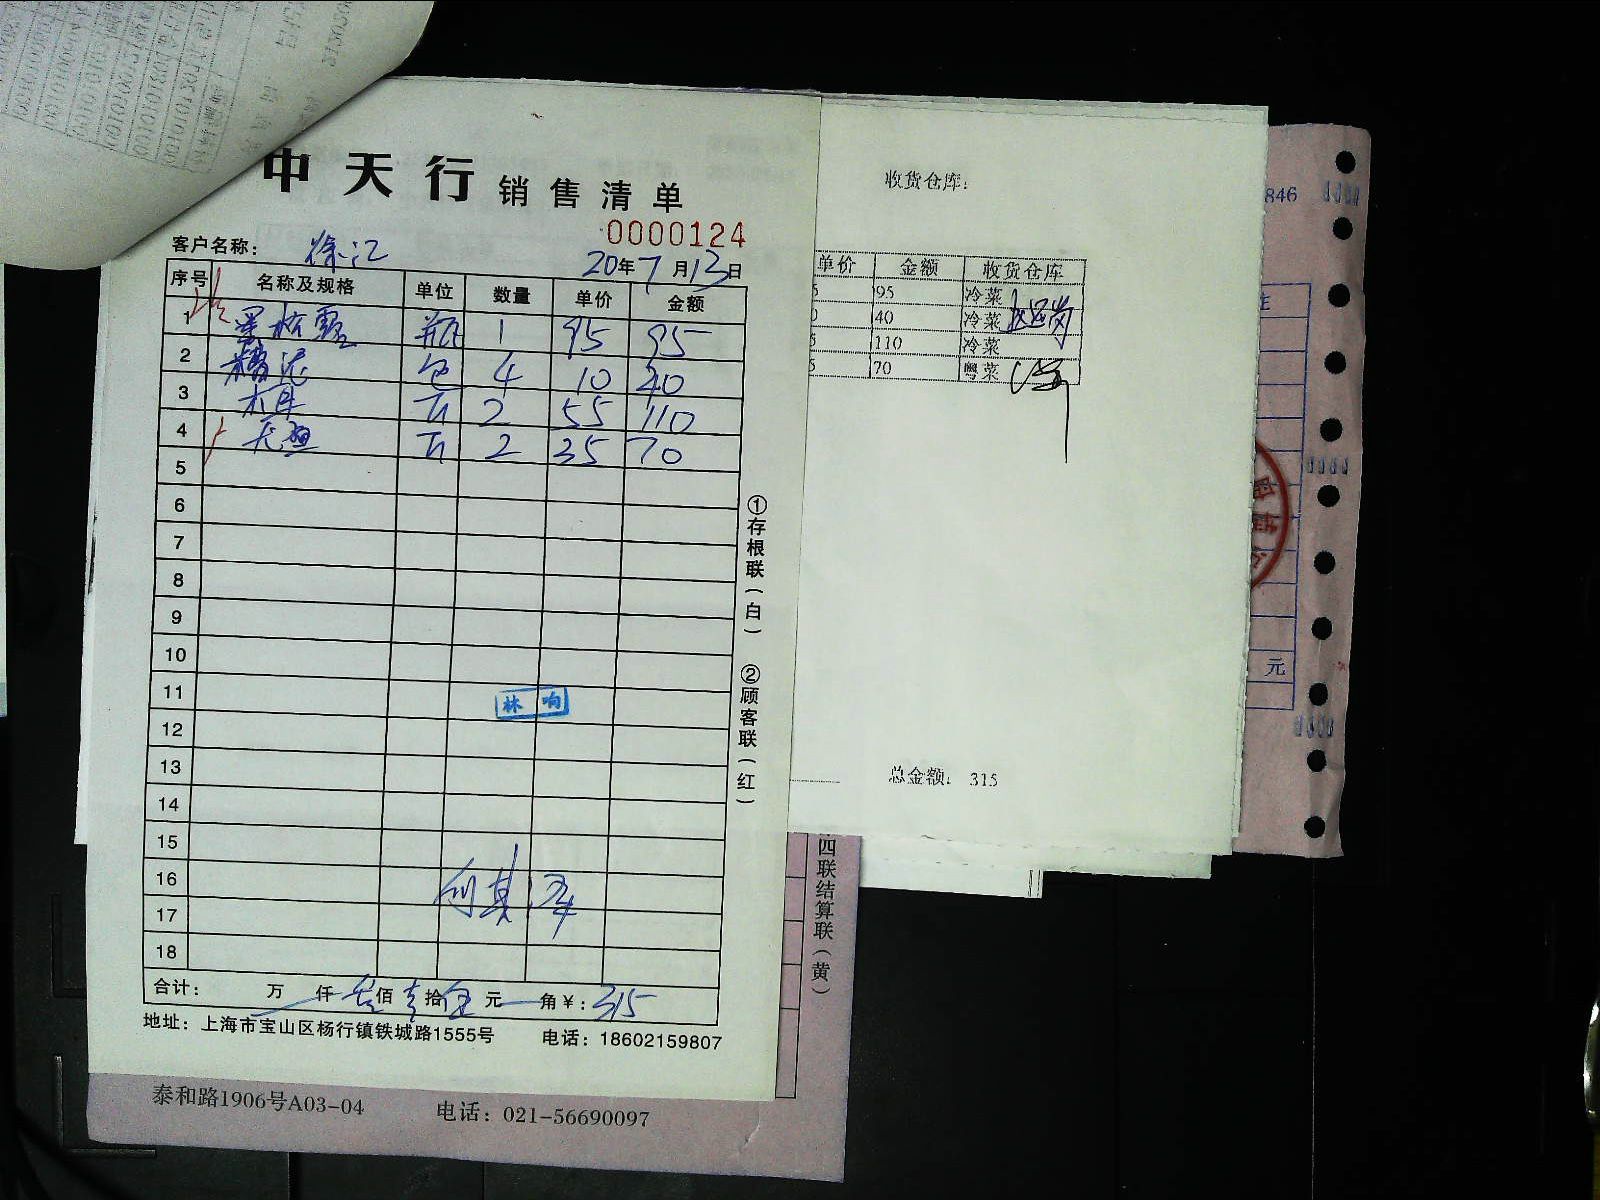 中天行 销售清单
0000124
客户名称： 徐汇
20年7月13日
序号 名称及规格 单位 数量 单价 金额
1 瓶 1 95 95
2 糟泥 包 4 10 40
3 木耳 斤 2 55 110
4 斤 2 35 70
5
6
7
8
9
10
11
12
13
14
15
16
17
18
林响
合计： 万 仟 叁佰 壹拾 伍元 角￥：315
地址：上海市宝山区杨行镇铁城路1555号 电话：18602159807
①存根联（白） ②顾客联（红）
收货仓库：
单价 金额 收货仓库
5 95 冷菜
0 40 冷菜
5 110 冷菜
5 70 粤菜
总金额： 315
846
元
四联结算联（黄）
泰和路1906号A03-04 电话：021-56690097